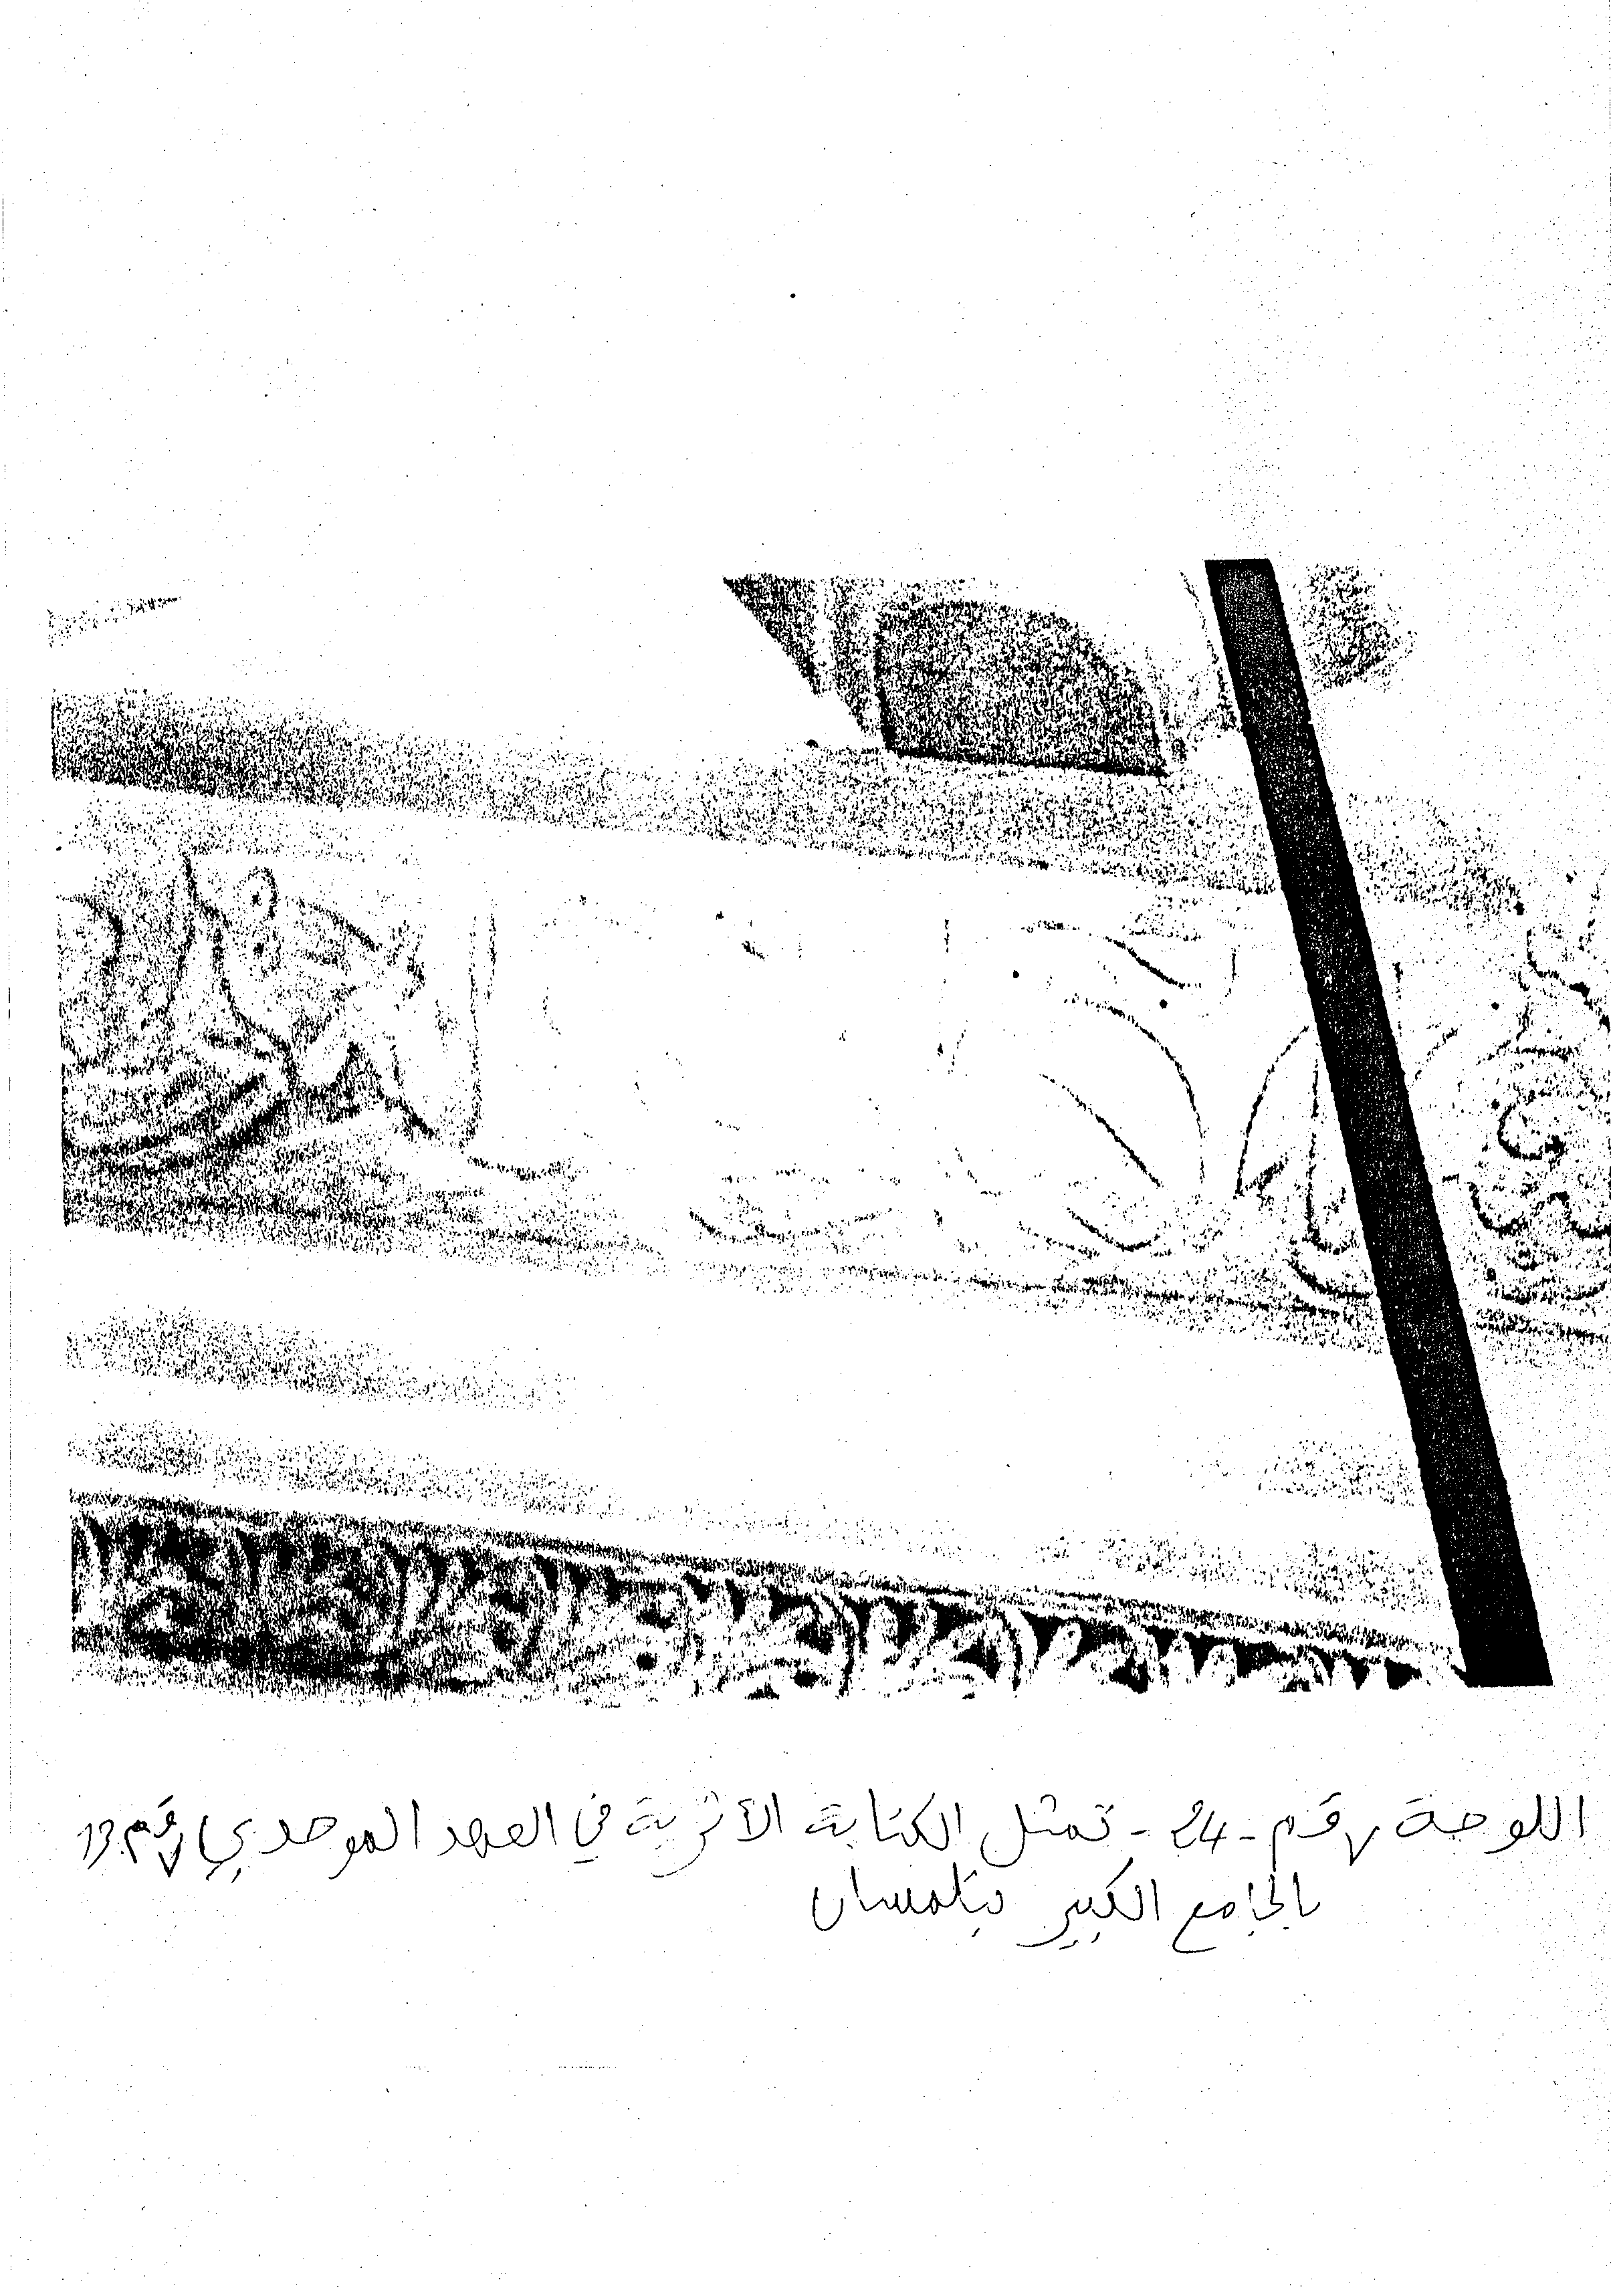 اللوحة رقم - 24 - تمثل الكتابة الأثرية في العهد الموحدي رقم 13
بالجامع الكبير بتلمسان